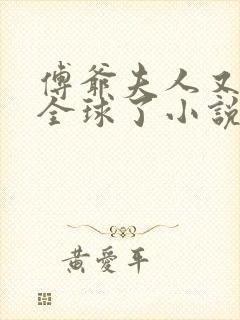 傅爺夫人又
全球了小説
黃愛平